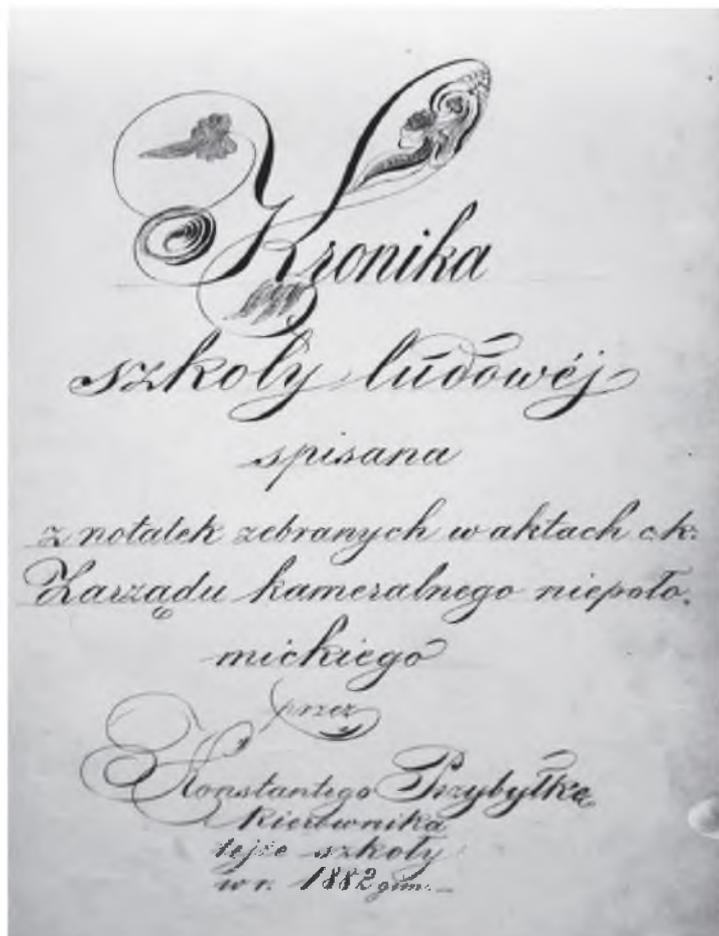 Kronika
szkoły ludowéj
spisana
z notatek zebranych w aktach c.k.
Zarządu kameralnego niepoło-
mickiego
przez
Konstantego Przybyłkę
Kierownika
tejże szkoły
w r. 1882gim.